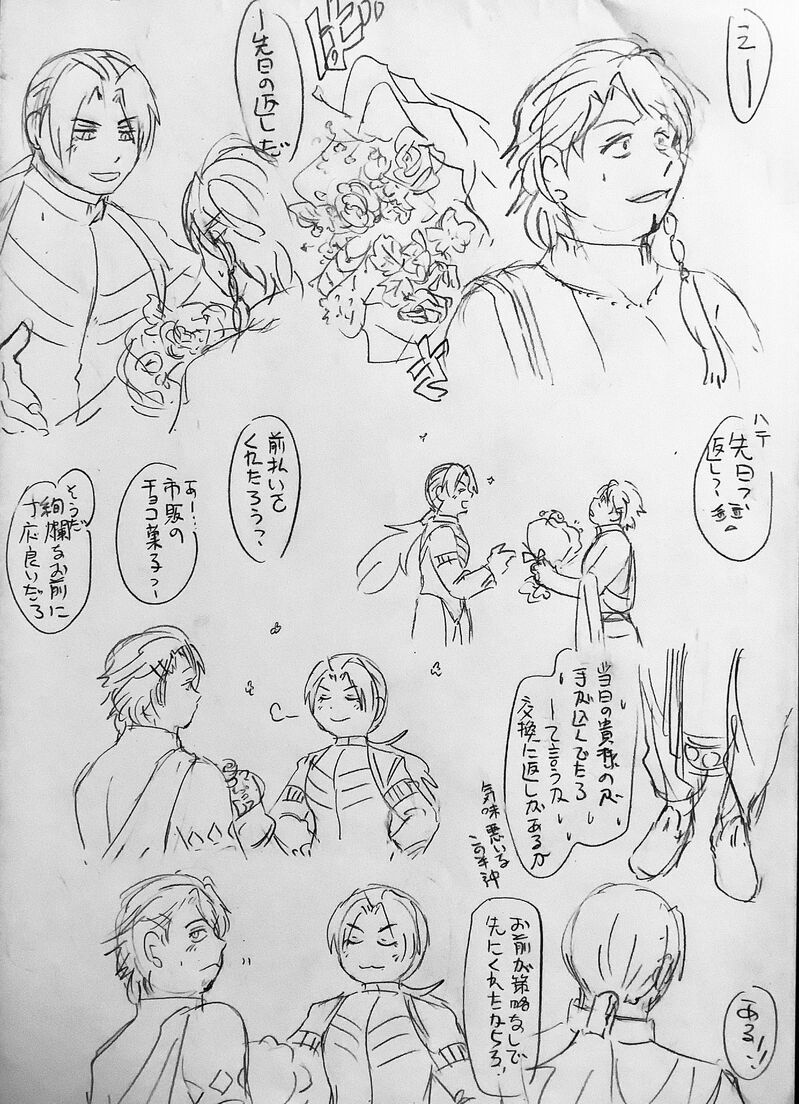 ミー
ー先日の返しだ
ハテ
先日っ
返し？
前払いで
くれたろう？
あー…
市販の
チョコ菓子っ…
そうだ
絢爛なお前に
寸応良いだろ
当日の貴様のが
手が込んでたろ
ーて言うか
交換に返しがあるか
気味悪いな
お前が策略なしで
先にくれたならろ！
ある！！